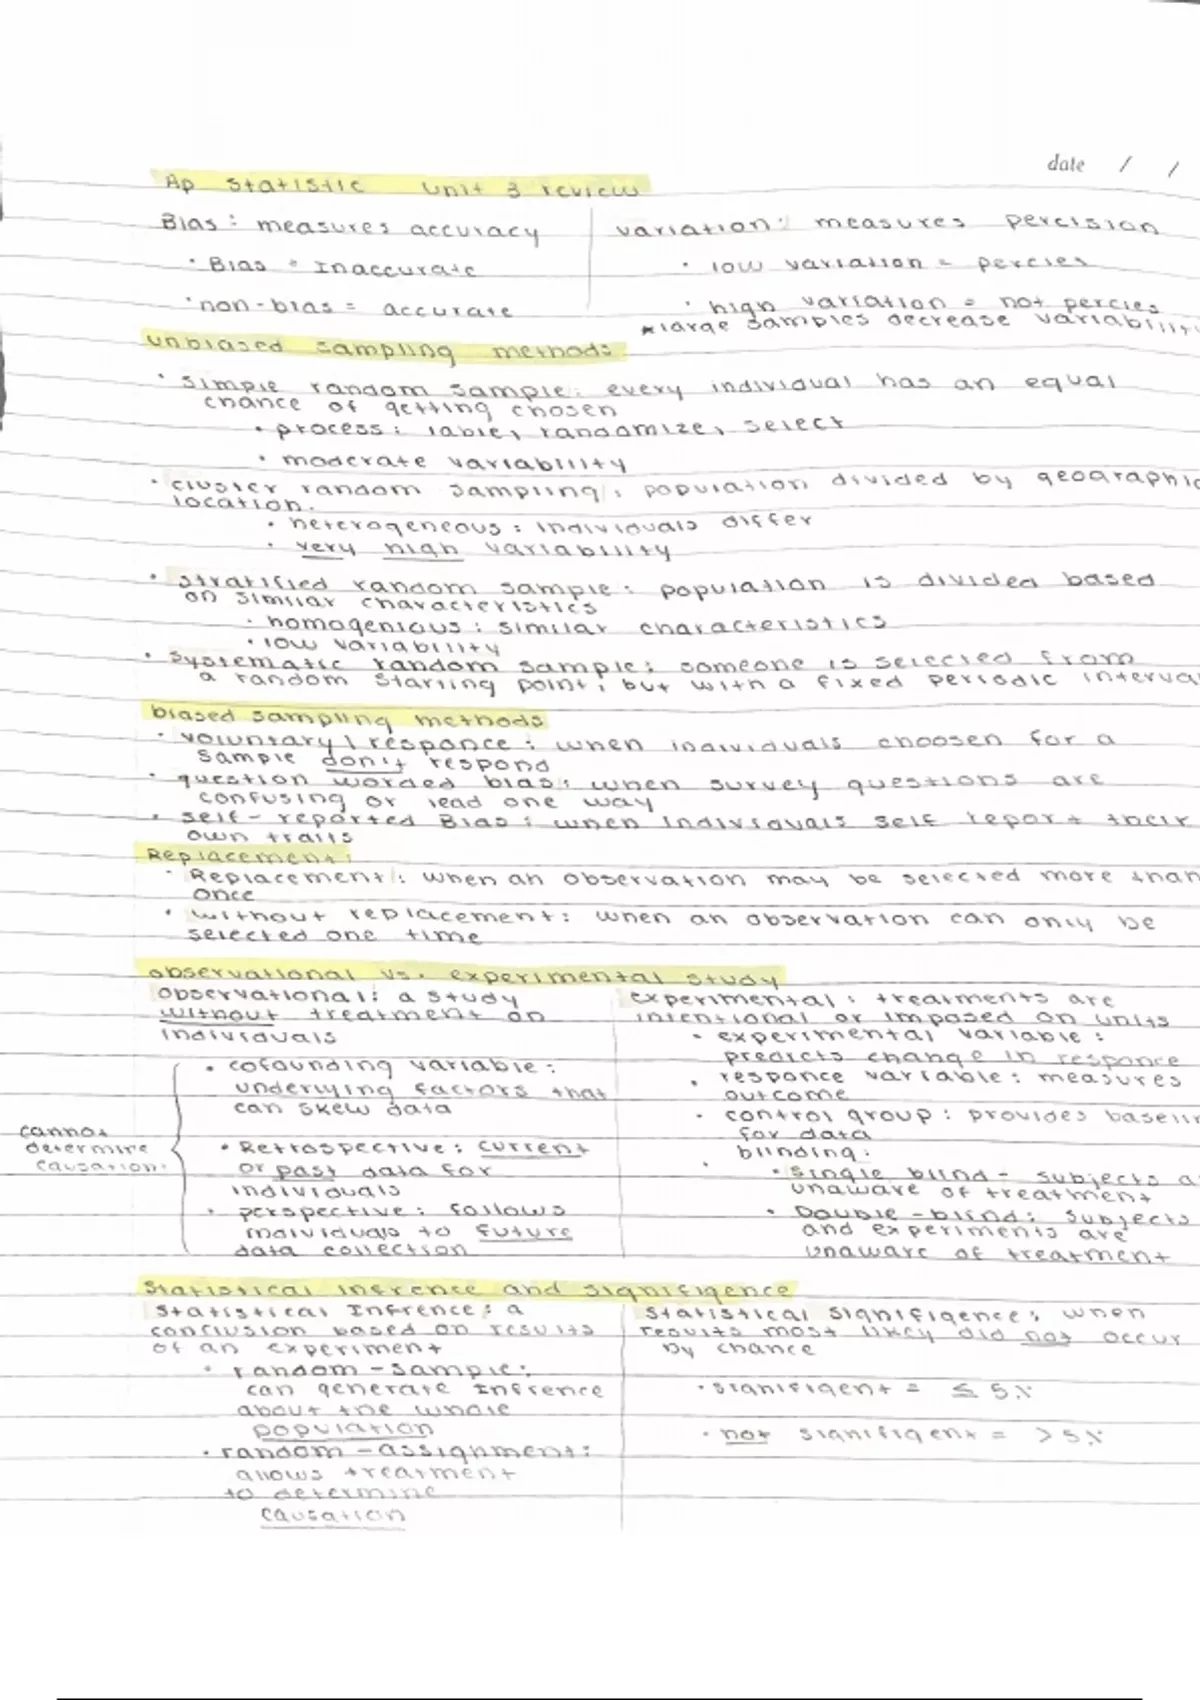 date / /
Ap statistic unit 3 review
Bias: measures accuracy
• Bias = Inaccurate
• non-bias = accurate
variation: measures percision
• low variation = percies
• high variation = not percies
*large samples decrease variability
unbiased sampling methods
• simple random sample: every individual has an equal
chance of getting chosen
• process: lable, randomize, select
• moderate variability
• cluster random sampling: population divided by geographic
location.
• heterogeneous: individuals differ
• very high variability
• stratified random sample: population is divided based
on similar characteristics
• homogenious: similar characteristics
• low variability
• systematic random sample: someone is selected from
a random starting point, but with a fixed periodic interva
biased sampling methods
• voluntary responce: when individuals choosen for a
sample don't respond
• question worded bias: when survey questions are
confusing or lead one way
• self-reported Bias: when individuals self report their
own traits
Replacement:
• Replacement: when an observation may be selected more than
once
• without replacement: when an observation can only be
selected one time
observational vs. experimental study
observational: a study
without treatment on
individuals
• cofounding variable:
underlying factors that
can skew data
• Retrospective: current
or past data for
individuals
• perspective: follows
individuals to future
data collection
cannot
determine
causation.
experimental: treatments are
intentional or imposed on units
• experimental variable:
predicts change in responce
• responce variable: measures
outcome
• control group: provides baselin
for data
• blinding:
• single blind - subjects a
unaware of treatment
• Double-blind: subjects
and experiments are
unaware of treatment
Statistical inference and signifigence
Statistical Inference: a
conclusion based on results
of an experiment
• random-sample:
can generate inference
about the whole
population
• random-assignment:
allows treatment
to determine
causation
Statistical signifigence: when
results most likely did not occur
by chance
• signifigent = ≤ 5%
• not signifigent = > 5%